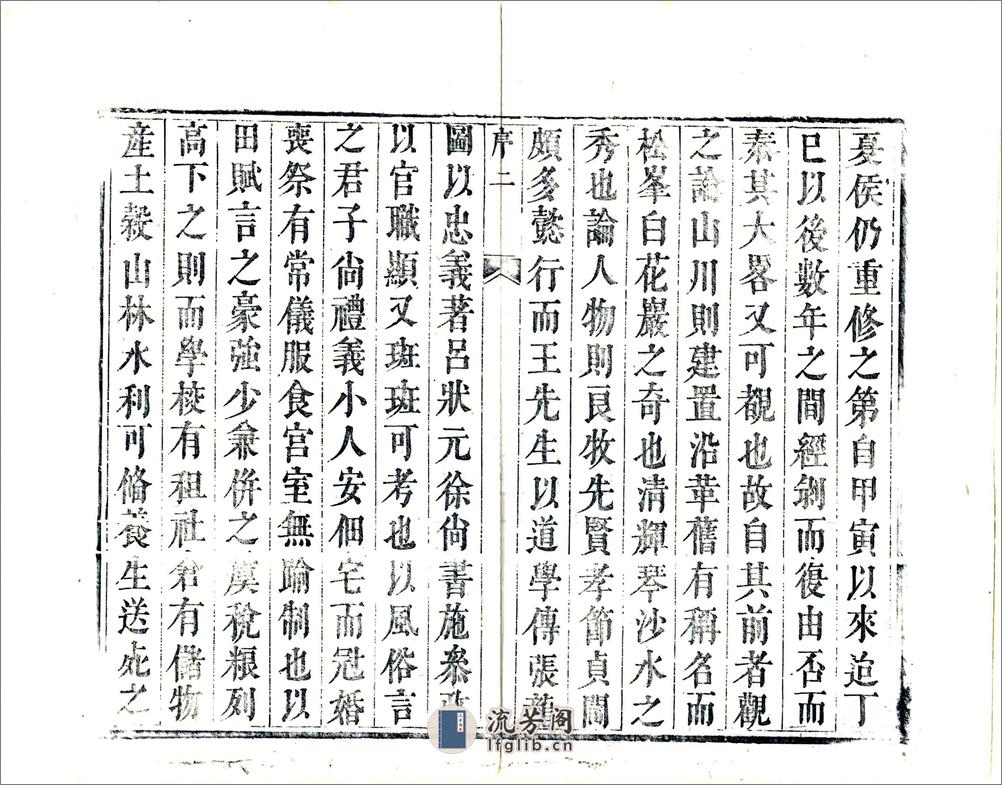 憂侯仍重修之第自甲寅以來迨丁
巳以後數年之間經剝而復由否而
泰其大畧又可覩也故自其前者觀
之論山川則建置沿革舊有稱名而
松峯白花巖之奇也清輝琴沙水之
秀也論人物則良牧先賢孝節貞閨
頗多懿行而王先生以道學傳張
序二
圖以忠義著呂狀元徐尙書施叅政
以官職顯又斑斑可考也以風俗言
之君子尙禮義小人安佃宅而冠婚
喪祭有常儀服食宫室無踰制也以
田賦言之豪強少兼併之虞稅粮列
高下之則而學校有租社倉有儲物
産土穀山林水利可脩養生送死之
流芳阁
lfglib.cn